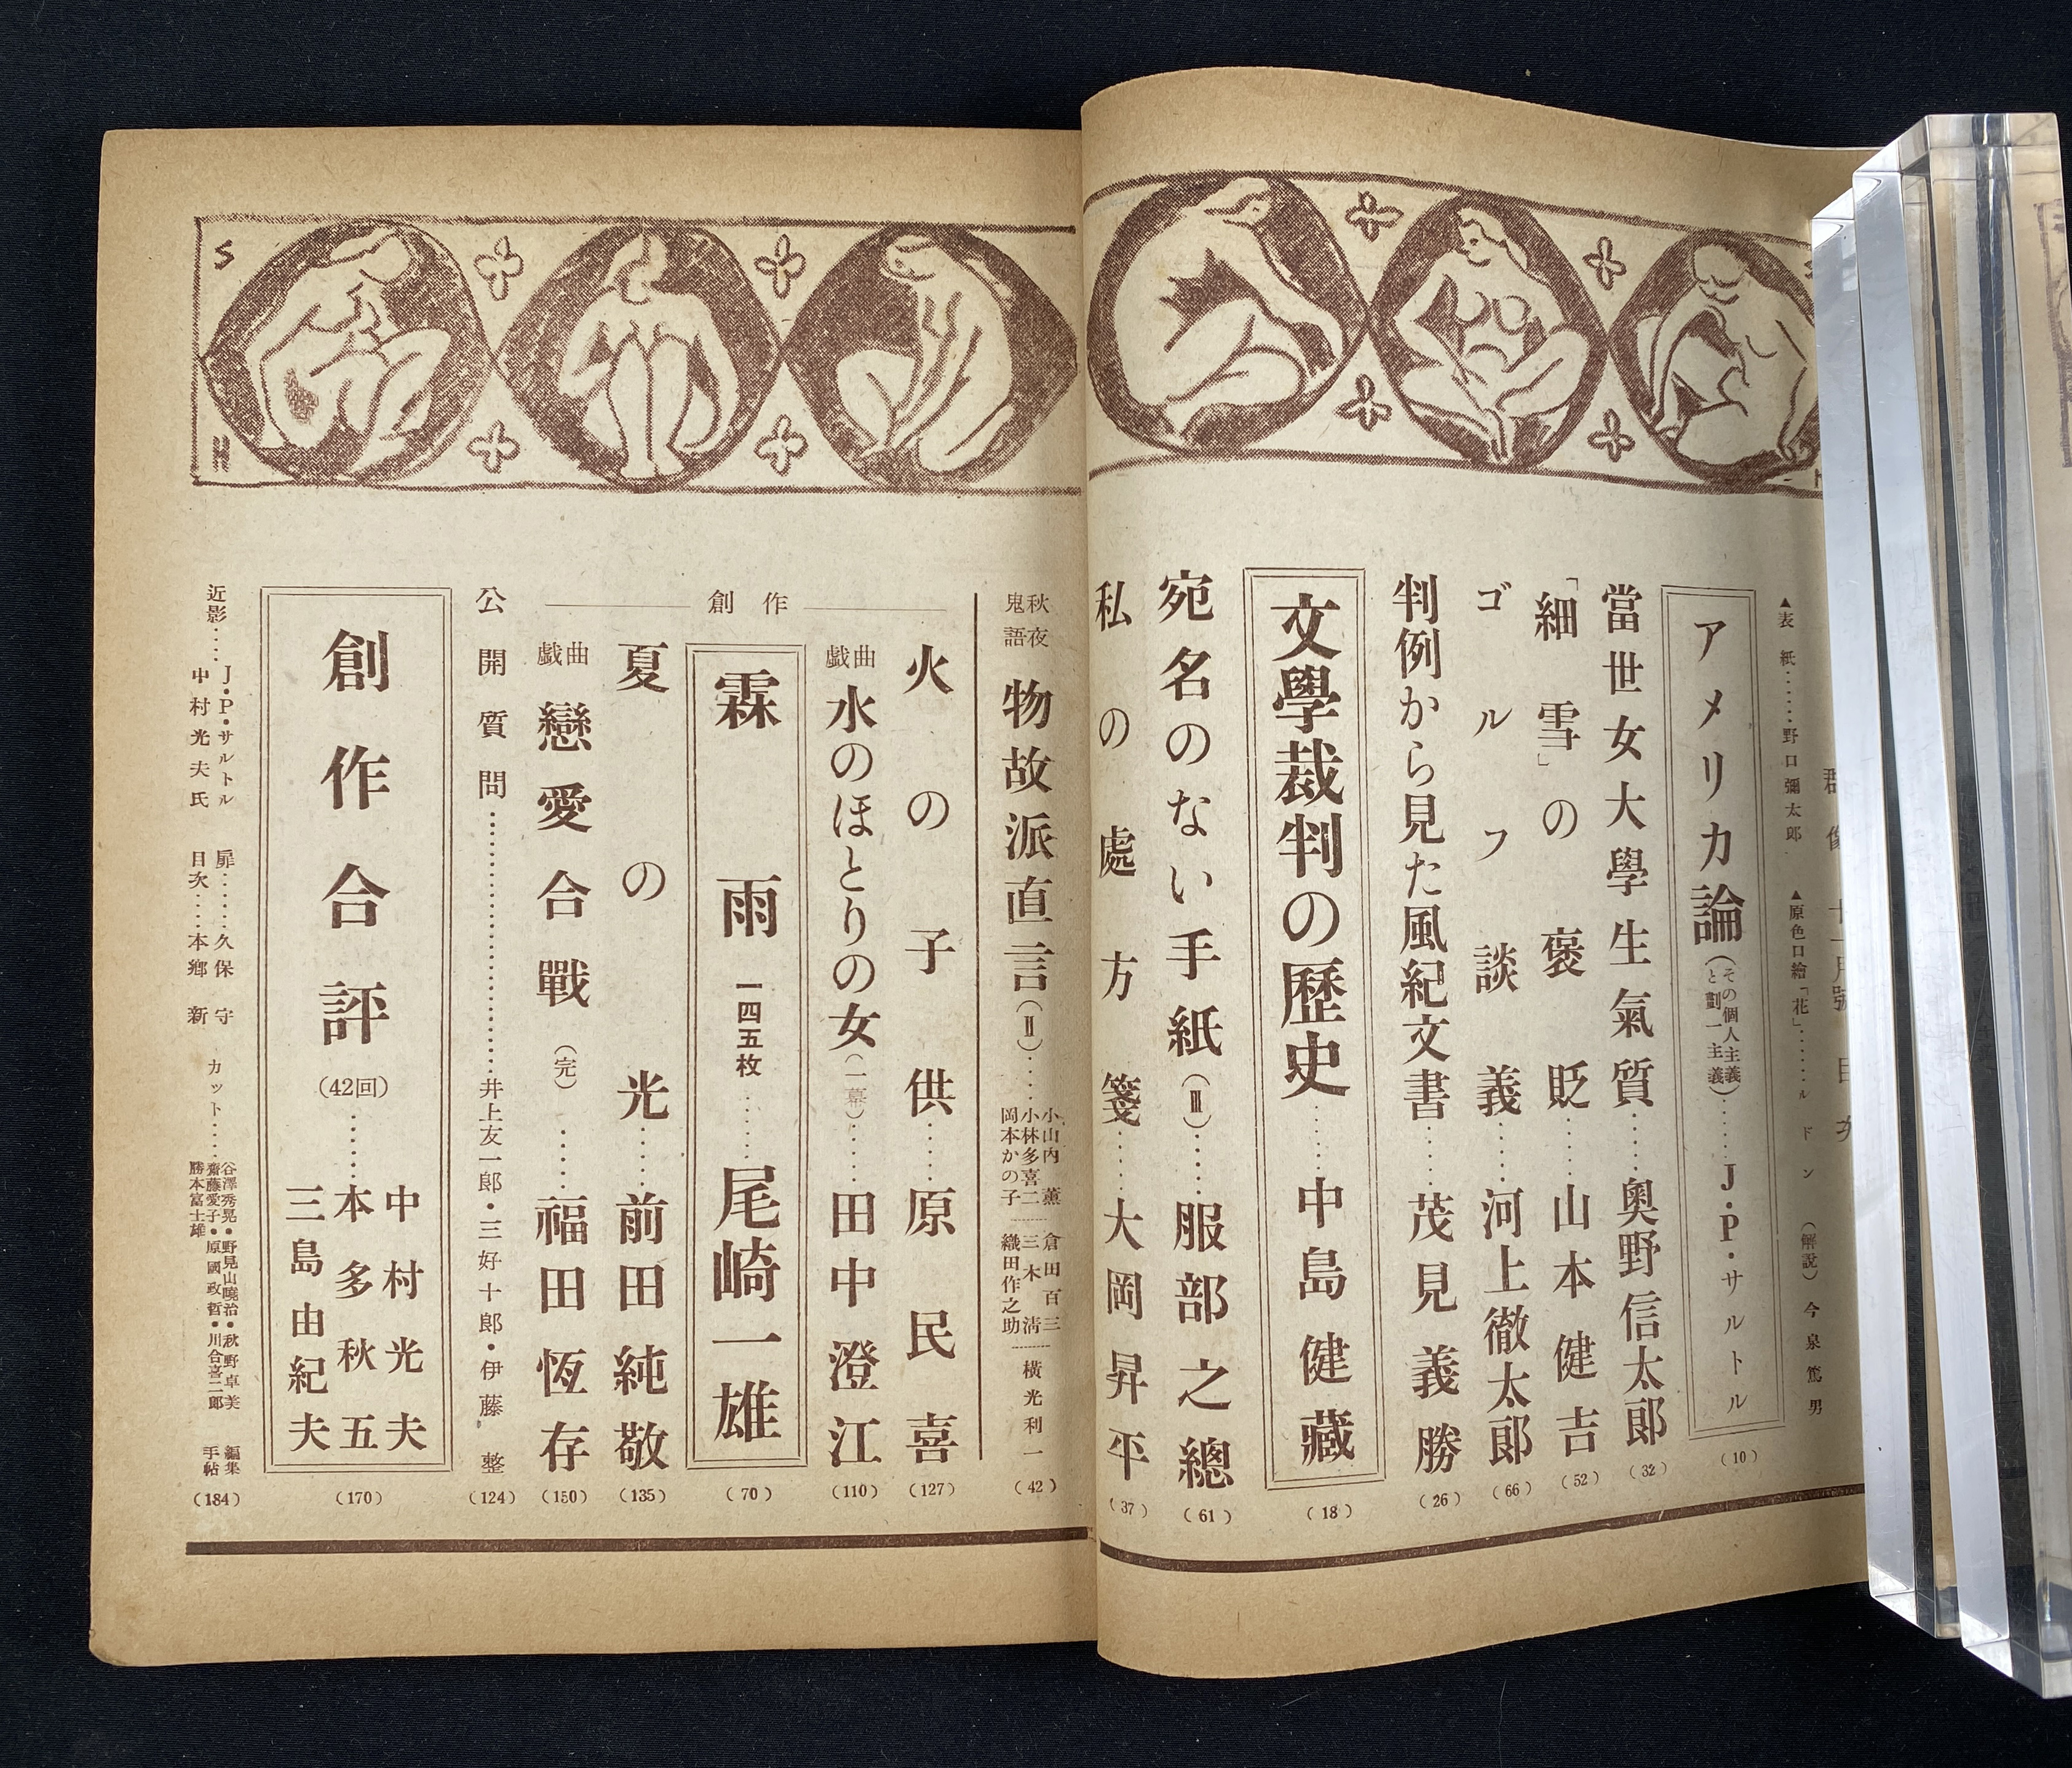 群像 十一月號 目次
▲表紙……野口彌太郎
▲原色口繪「花」……ルドン
(解説) 今泉篤男
アメリカ論(その個人主義と劃一主義)……J・P・サルトル (10)
當世女大學生氣質……奥野信太郎 (32)
「細雪」の褒貶……山本健吉 (52)
ゴルフ談義……河上徹太郎 (66)
判例から見た風紀文書……茂見義勝 (26)
文學裁判の歷史……中島健藏 (18)
宛名のない手紙(Ⅲ)……服部之總 (61)
私の處方箋……大岡昇平 (37)
秋夜鬼語
物故派直言(Ⅱ)……
小山内薫
小林多喜二
岡本かの子
倉田百三
三木清
織田作之助
横光利一
(42)
創作
火の子供……原民喜 (127)
戯曲 水のほとりの女(一幕)……田中澄江 (110)
霖雨 一四五枚……尾崎一雄 (70)
夏の光……前田純敬 (135)
戯曲 戀愛合戰(完)……福田恆存 (150)
公開質問……井上友一郎・三好十郎・伊藤整 (124)
創作合評(42回)……
中村光夫
本多秋五
三島由紀夫
(170)
近影……
J・P・サルトル
中村光夫氏
扉……久保守
目次……本郷新
カット……
谷澤秀晃・野見山曉治・秋野卓美
齋藤愛子・原國政哲・川合喜二郎
勝本富士雄
編集手帖 (184)
S
H